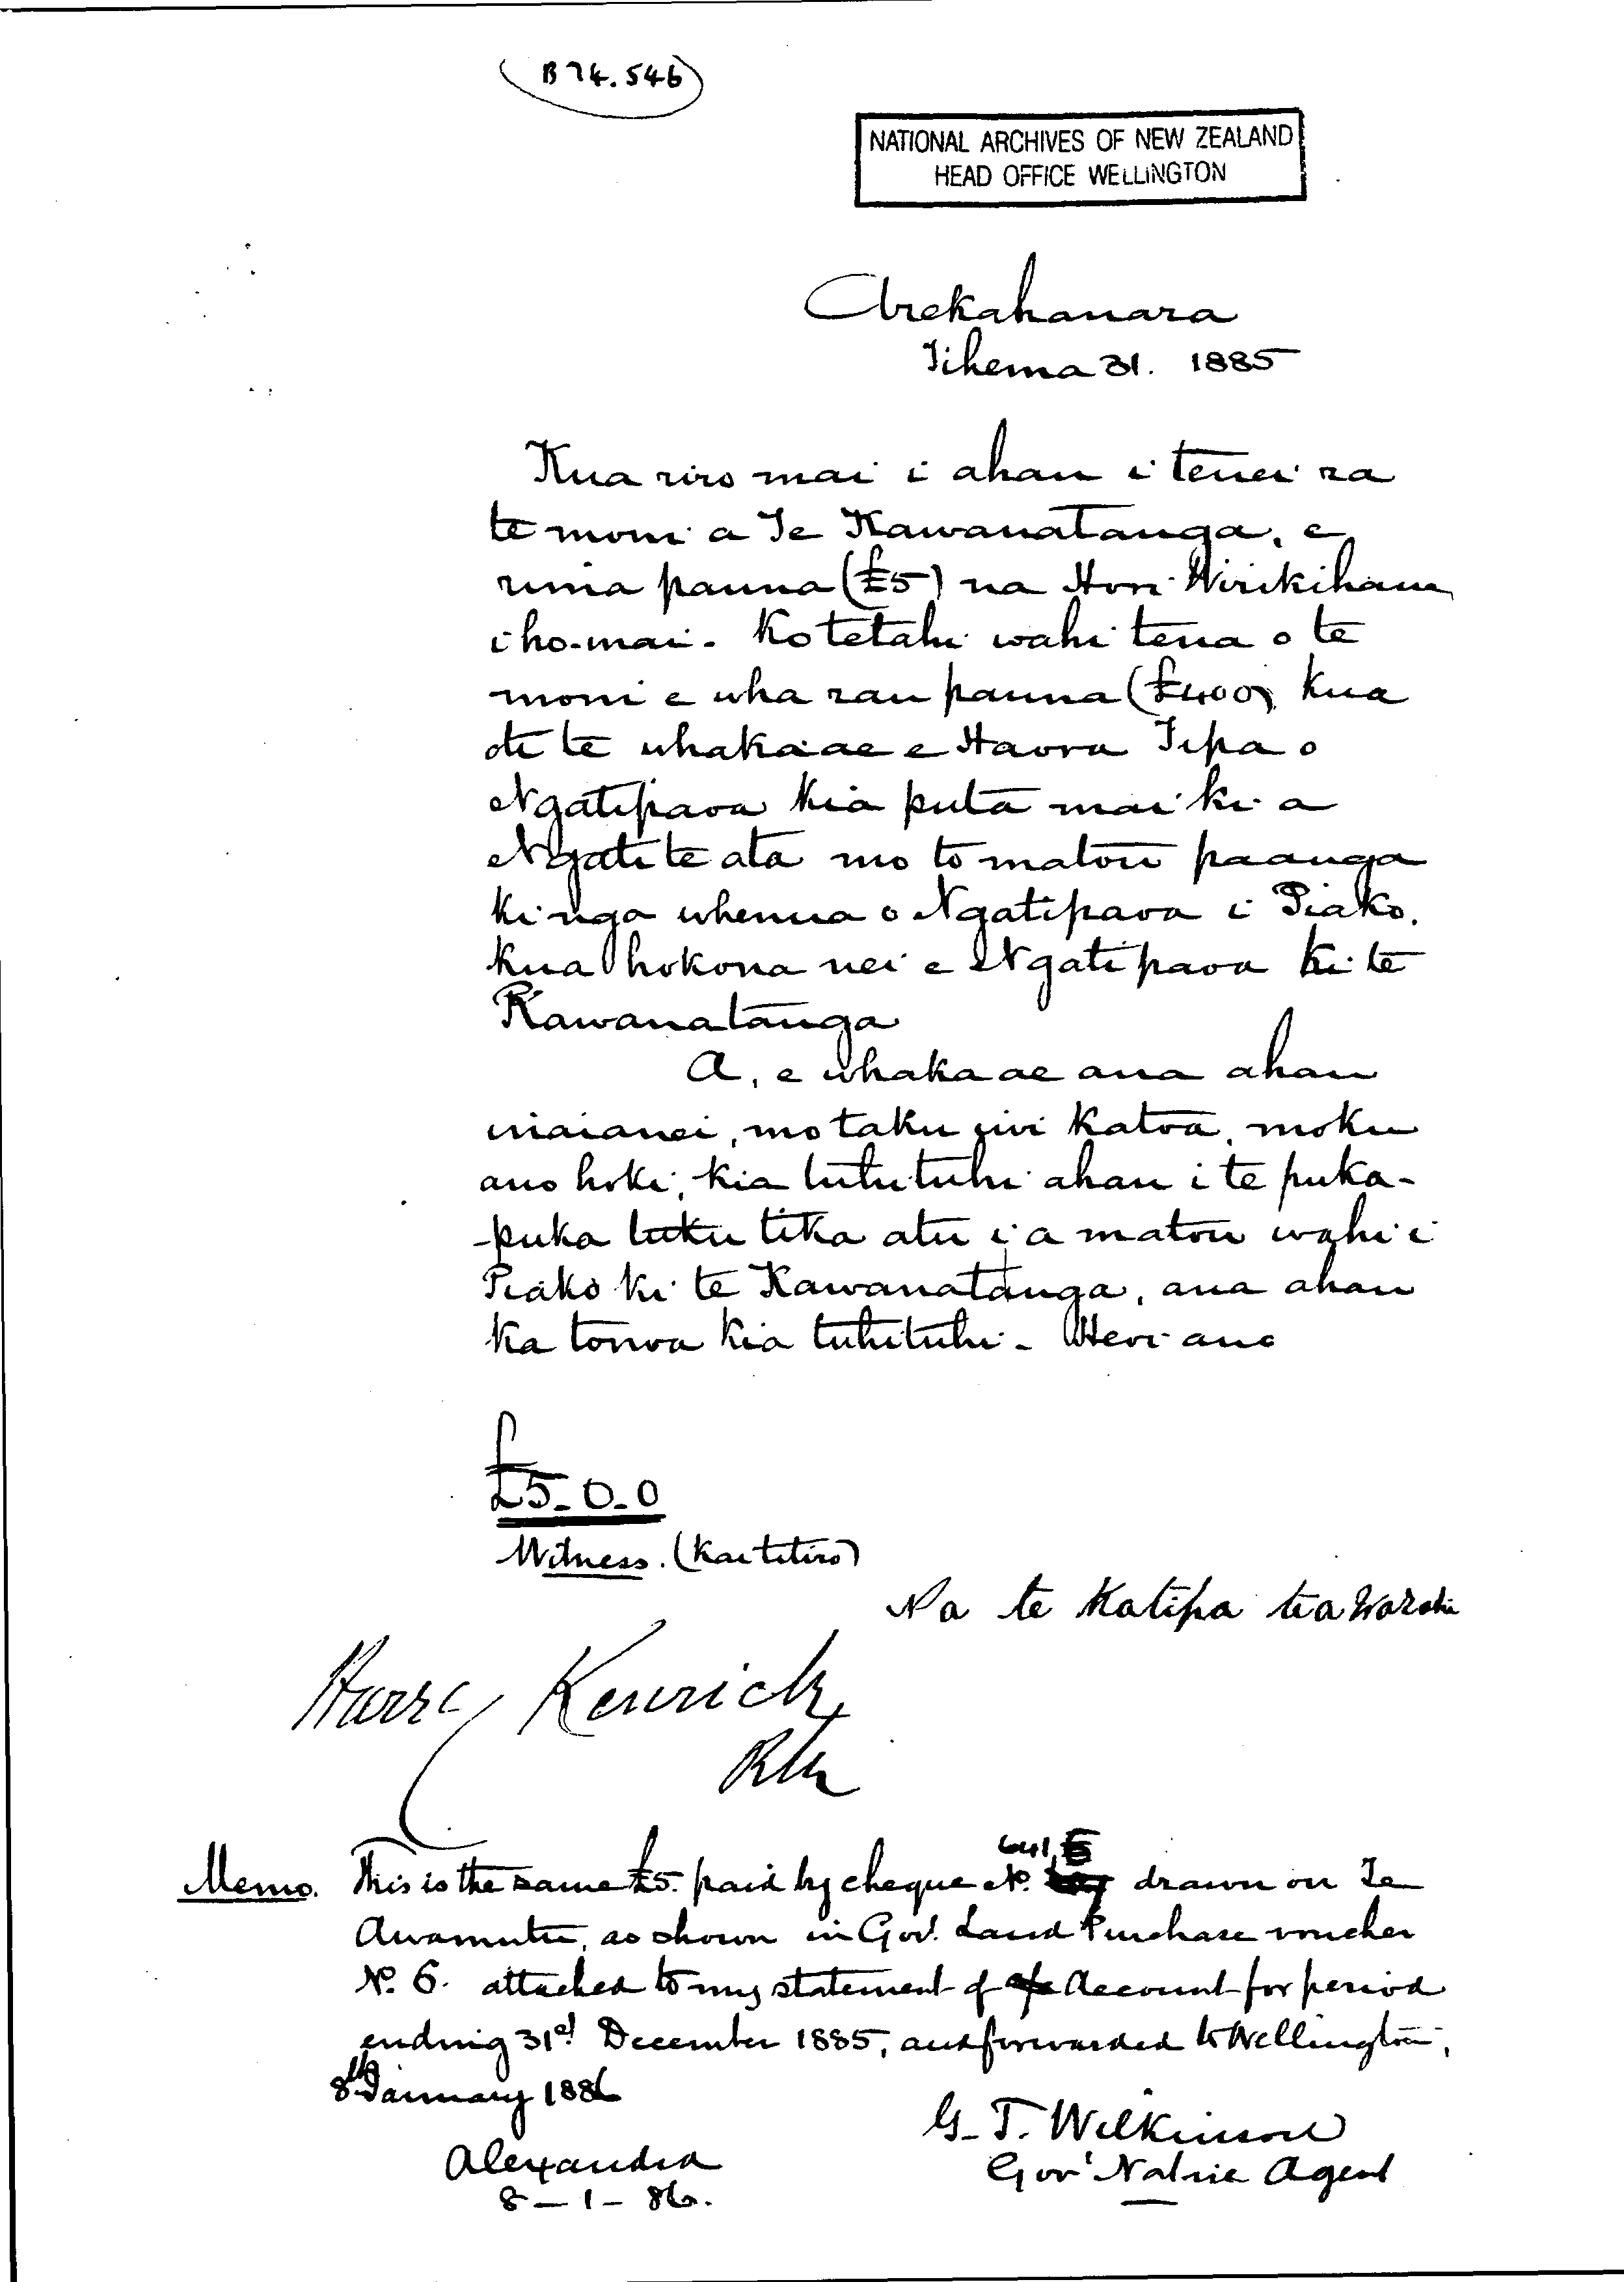 B 74.546
NATIONAL ARCHIVES OF NEW ZEALAND
HEAD OFFICE WELLINGTON
Arekahanara
Tihema 31. 1885
Kua riro mai i ahau i tenei ra
te moni a Te Kawanatanga, e
rima pauna (£5) na Hori Wirikihana
i ho-mai. Ko tetahi wahi tena o te
moni e wha rau pauna (£400) kua
oti te whakaae e Haora Tipa o
Ngatipaoa kia puta mai ki a
Ngati te ata mo to matou paanga
ki nga whenua o Ngatipaoa i Piako.
kua hokona nei e Ngatipaoa ki te
Kawanatanga
A, e whakaae ana ahau
inaianei, mo taku iwi katoa, moku
ano hoki, kia tuhituhi ahau i te puka-
-puka tuku tika atu i a matou wahi i
Piako ki te Kawanatanga, ana ahau
ka tonoa kia tuhituhi. Heoi ano
£5-0-0
Witness. (Kai titiro)
Na te Katipa te a Warahi
Harry Kenrick
RM
Memo. This is the same £5. paid by cheque No. 641, drawn on Te
Awamutu, as shown in Govt. Land Purchase voucher
No. 6. attached to my statement of Account for period
ending 31st December 1885, and forwarded to Wellington,
8th January 1886
G. T. Wilkinson
Govt Native Agent
Alexandra
8-1-86.